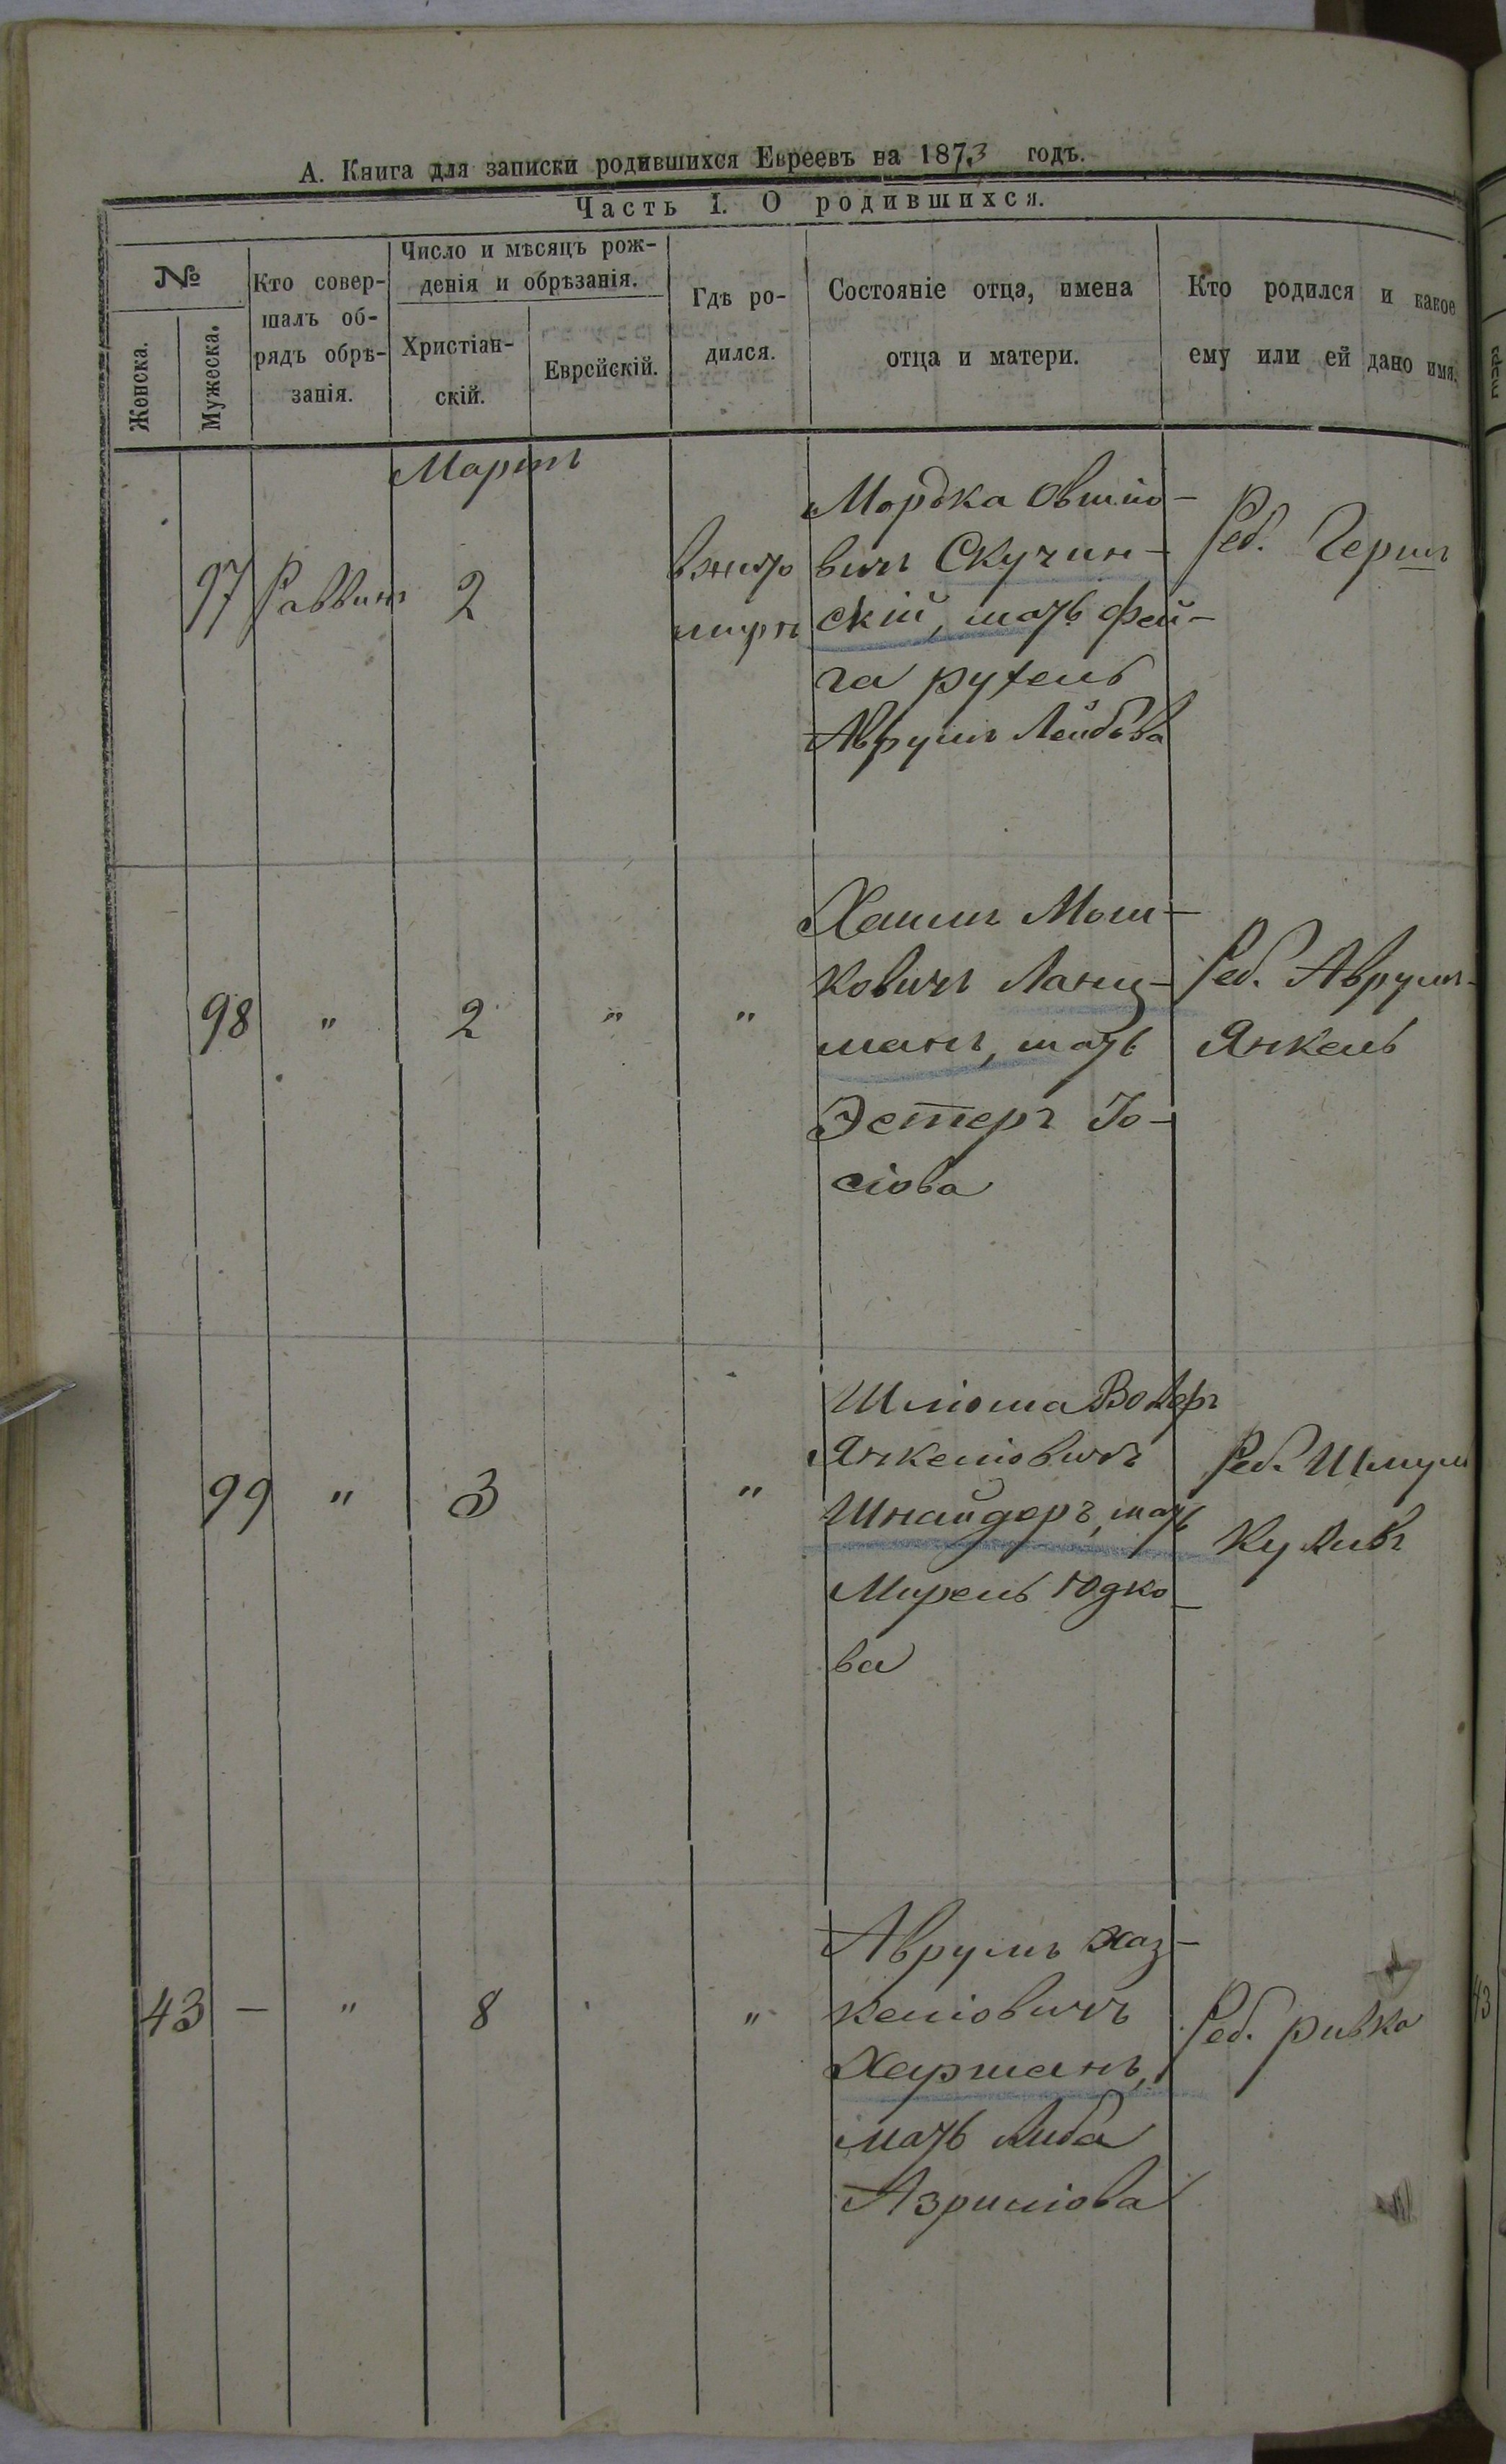 А. Книга для записки родившихся Евреевъ на 1873 годъ.
Часть I. О родившихся.
№
Женска.
Мужеска.
Кто совер-
шалъ об-
рядъ обрѣ-
занія.
Число и мѣсяцъ рож-
денія и обрѣзанія.
Христіан-
скій.
Еврейскій.
Гдѣ ро-
дился.
Состояніе отца, имена
отца и матери.
Кто родился и какое
ему или ей дано имя.
Мартъ
97
Раввинъ
2
Вжито
мирѣ
Мордка Овшіо-
вичъ Скучин-
скій, мать Фей-
га рухель
Аврумъ Лейбова
Реб. Гершъ
98
"
2
"
"
Хаимъ Мош-
ковичъ Ланц-
манъ, мать
Эстеръ Іо-
сіова
Реб. Аврумъ-
Янкель
99
"
3
"
Шліома
Янкеліовичъ
Шнайдеръ, мать
Мирель Юдко-
ва
Реб. Шмуль
43
-
"
8
"
Аврумъ Хаз-
келіовичъ
Харманъ,
мать Либа
Азриліова
Реб. ривка
43